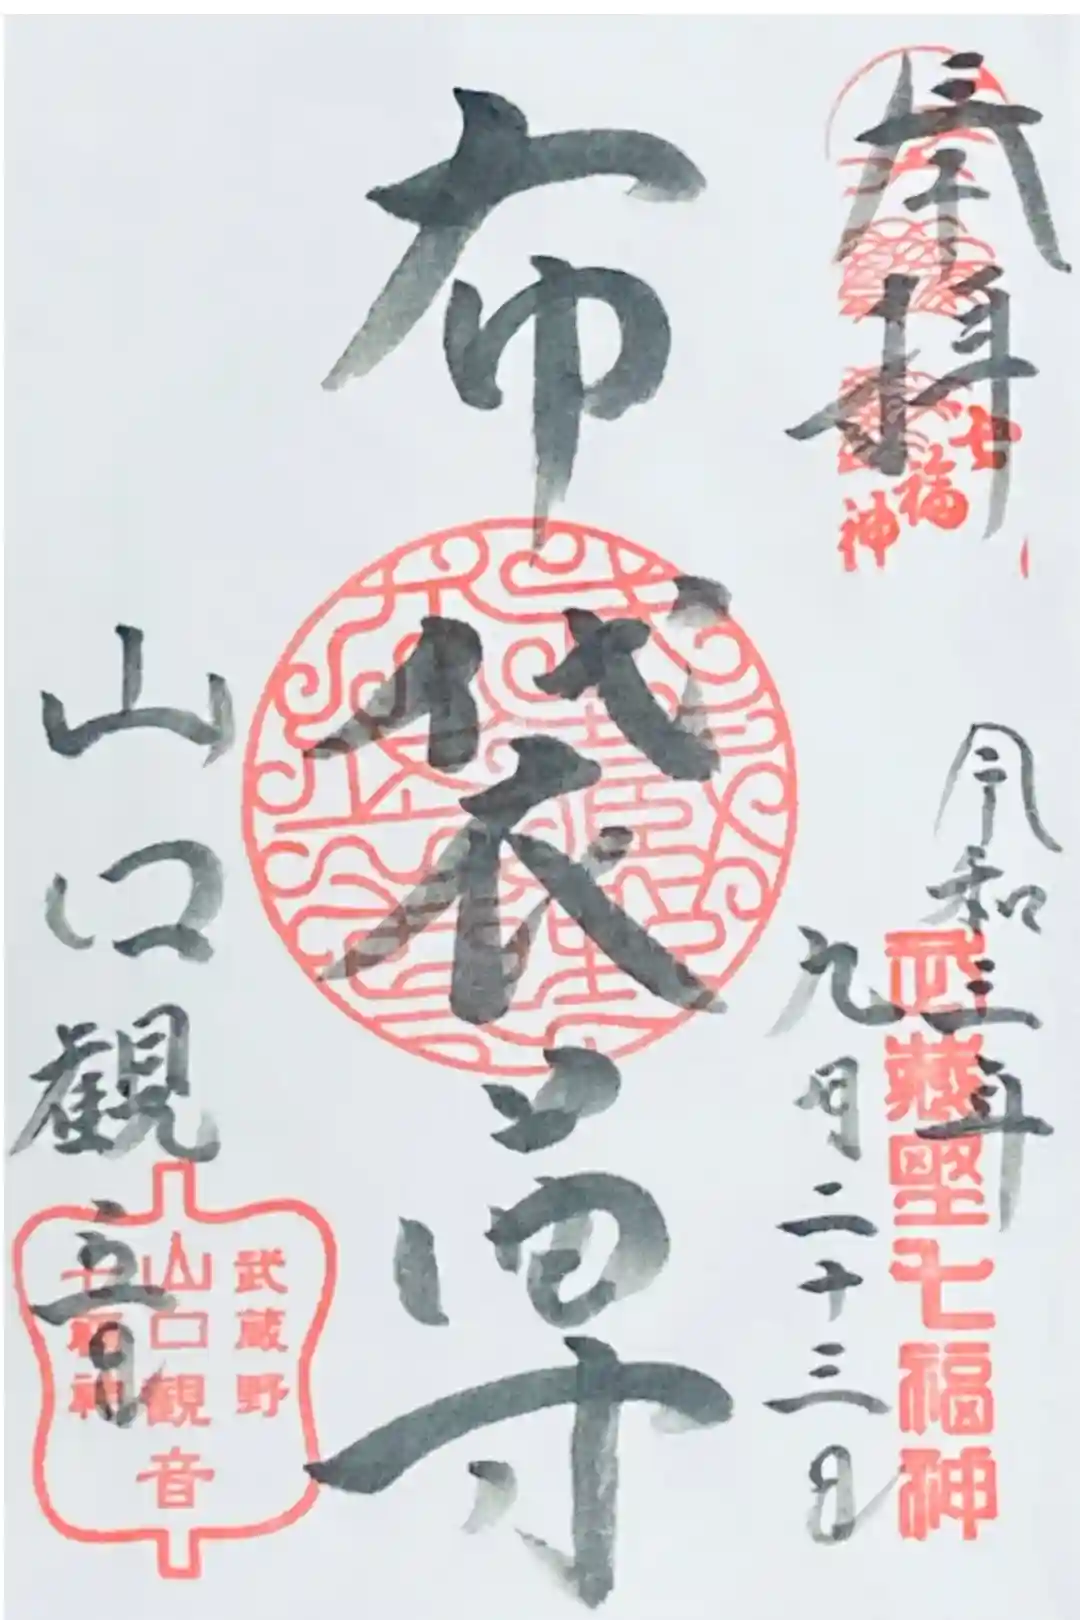 奉拝
七福神
令和三年
九月二十三日
武蔵野七福神
布袋尊
山口観音
武蔵野
山口観音
七福神